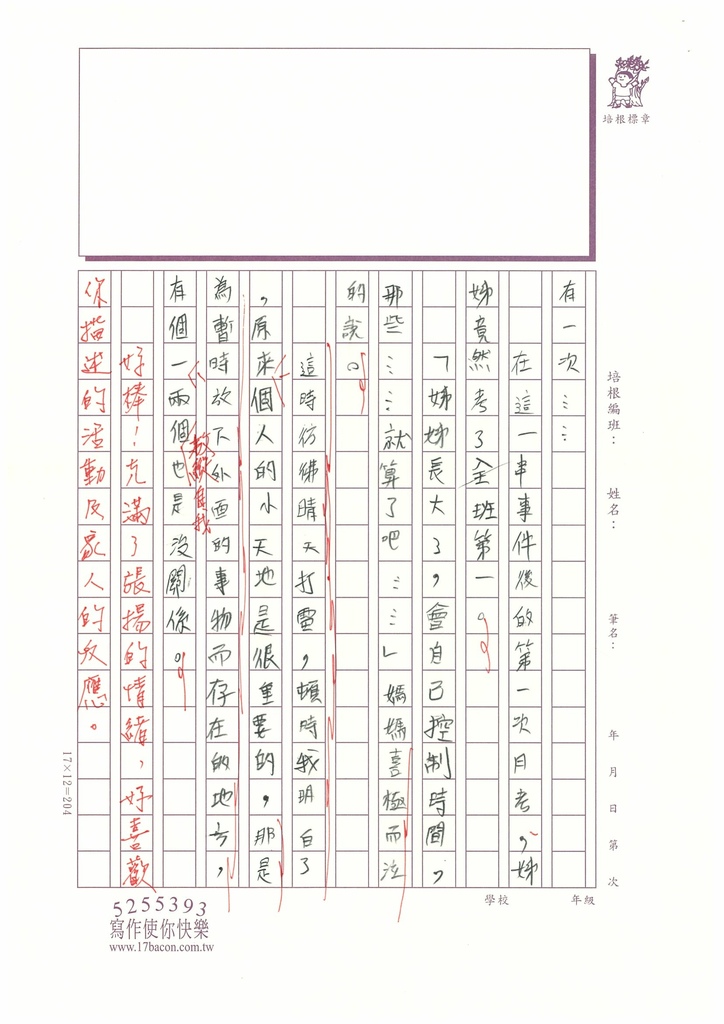 培根標章
培根編班： 姓名： 筆名： 年 月 日 第 次
學校 年級
有一次……
在這一串事件後的第一次月考，姊
姊竟然考了全班第一。
「姊姊長大了，會自己控制時間，
那些……就算了吧……」媽媽喜極而泣
的說。
這時彷彿晴天打雷，頓時我明白了
，原來個人的小天地是很重要的，那是
為暫時放下外面的事物而存在的地方，
有個一兩個也是沒關係。
好棒！充滿了張揚的情緒，好喜歡
你描述的活動及家人的反應。
17×12=204
5255393
寫作使你快樂
www.17bacon.com.tw